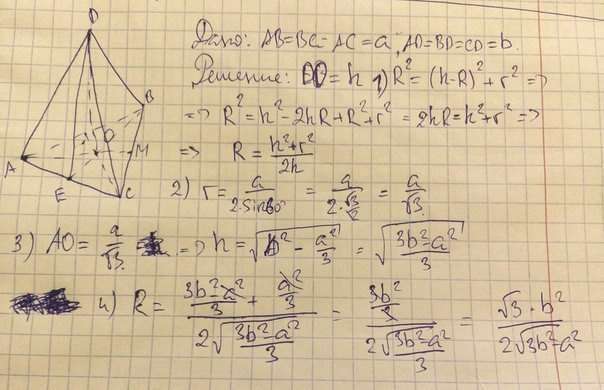 D
A
B
O
M
E
C
Дано: AB=BC=AC=a, AD=BD=CD=b.
Решение: DO=h 1) R²=(h-R)²+r² =>
=> R²=h²-2hR+R²+r² = 2hR=h²+r² =>
=> R = (h²+r²)/2h
2) r = a/(2·sin60°) = a/(2·√3/2) = a/√3
3) AO = a/√3 => h = √(b² - a²/3) = √((3b²-a²)/3)
4) R = ((3b²-a²)/3 + a²/3)/(2√((3b²-a²)/3)) = (3b²/3)/(2√((3b²-a²)/3)) = (√3·b²)/(2√(3b²-a²))